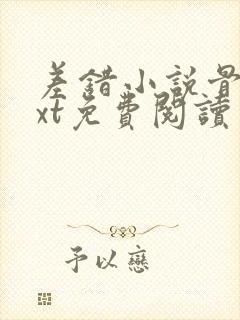 差錯小說是
xt免費閱讀
予以戀